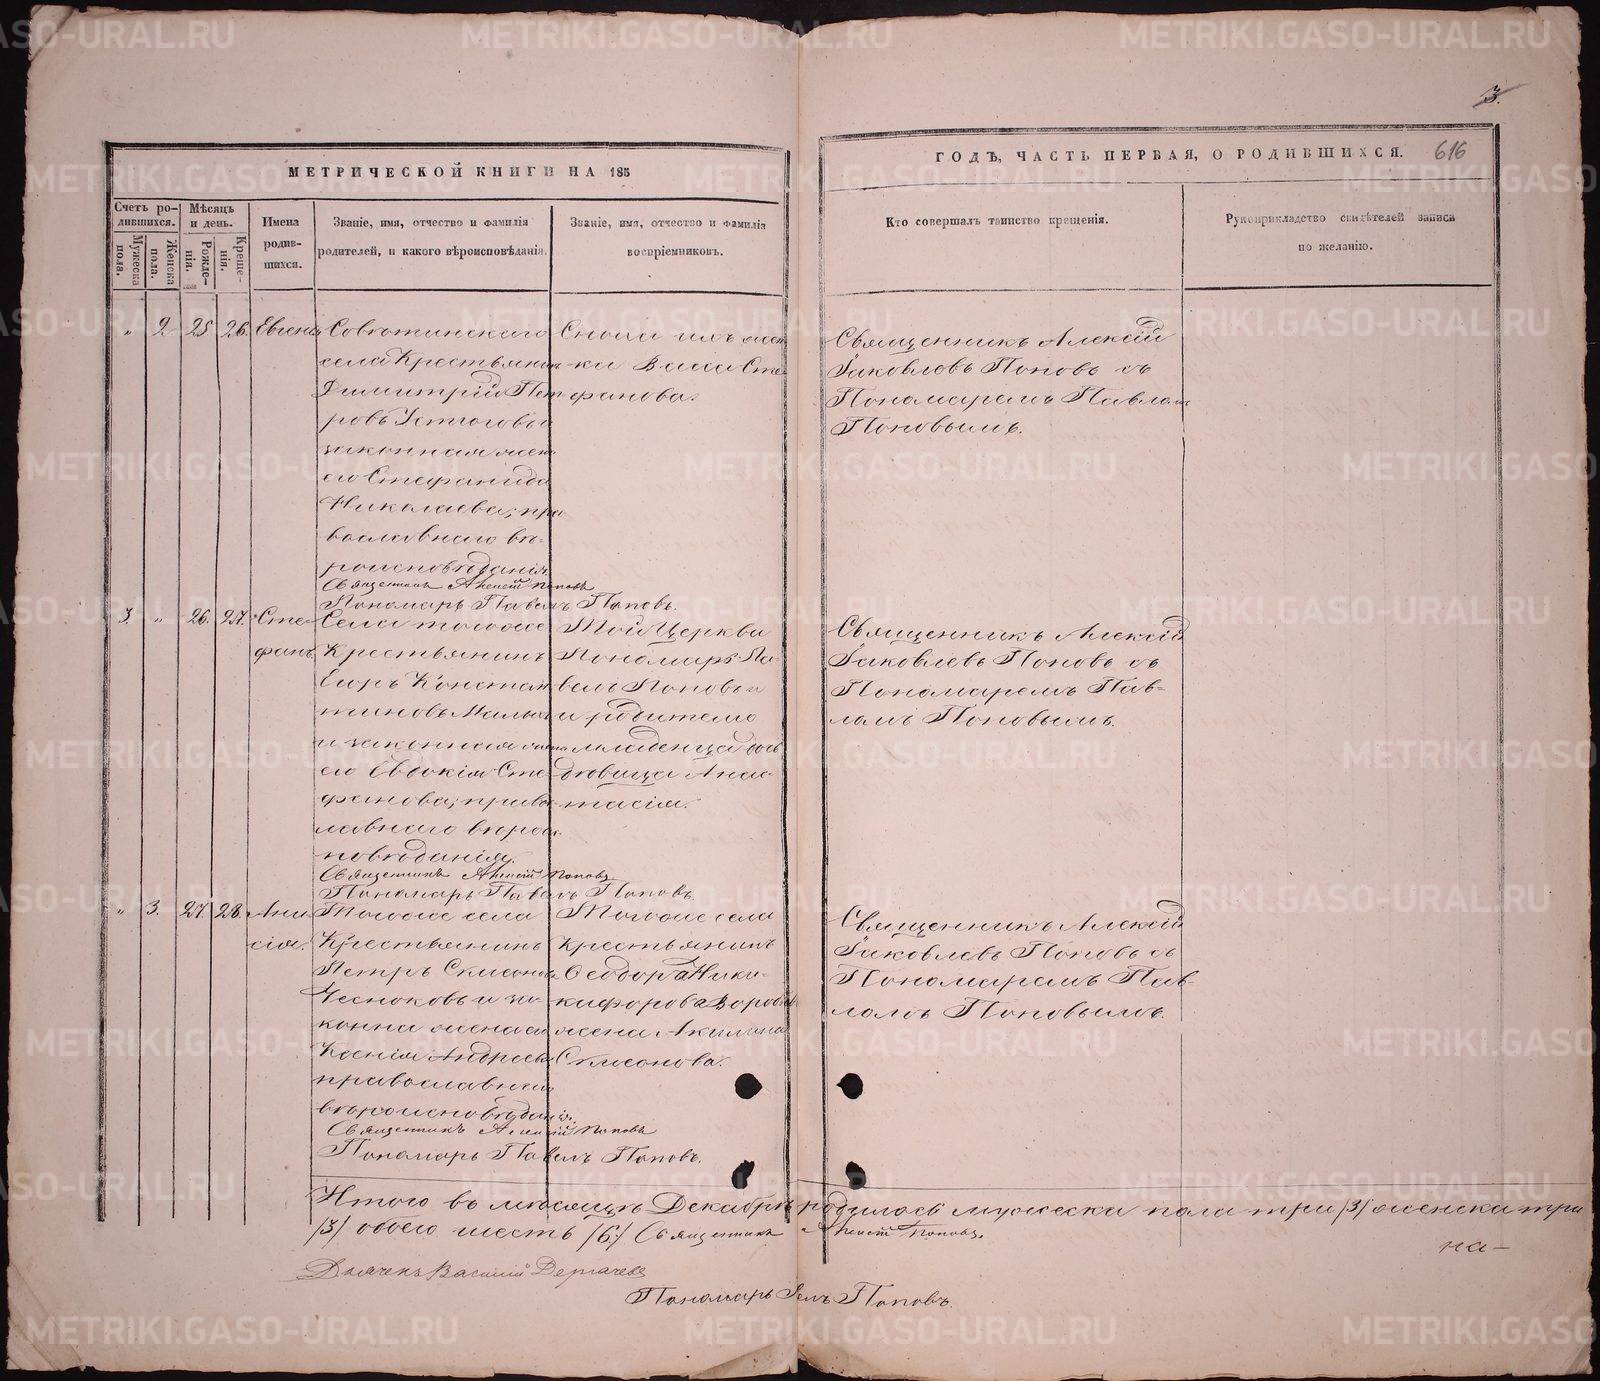 3.
МЕТРИЧЕСКОЙ КНИГИ НА 185
ГОДЪ, ЧАСТЬ ПЕРВАЯ, О РОДИВШИХСЯ. 616
Счетъ ро-
дившихся.
Мужеска
пола.
Женска
пола.
Мѣсяцъ
и день.
Рожде-
нія.
Креще-
нія.
Имена
родив-
шихся.
Званіе, имя, отчество и фамилія
родителей, и какого вѣроисповѣданія.
Званіе, имя, отчество и фамилія
воспріемниковъ.
Кто совершалъ таинство крещенія.
Рукоприкладство свидѣтелей записи
по желанію.
„ 2. 25 26. Евгенія
села Крестьянинъ
Димитрій Пет
ровъ и
законная жена
его Стефанида
Николаева; пра
вославнаго вѣ-
роисповѣданія.
Священникъ Алексій Поповъ
Пономарь Павелъ Поповъ.
Васса Сте
фанова.
Священникъ Алексій
Іаковлевъ Поповъ съ
Пономаремъ Павломъ
Поповымъ.
3. „ 26. 27. Сте-
фанъ.
Села тогоже
Крестьянинъ
Егоръ Констан
тиновъ
и законная жена
его Евдокія Сте
фанова; правос
лавнаго вѣроис
повѣданія.
Священникъ Алексій Поповъ
Пономарь Павелъ Поповъ.
Той Церкви
Пономарь Па-
велъ Поповъ и
родителю
младенца
девица Анас
тасія.
Священникъ Алексій
Іаковлевъ Поповъ съ
Пономаремъ Пав-
ломъ Поповымъ.
„ 3. 27. 28. Ани
сія.
Тогоже села
Крестьянинъ
Петръ
Чесноковъ и за-
конна жена его
Ксенія Андреева
православнаго
вѣроисповѣданія.
Священникъ Алексій Поповъ
Пономарь Павелъ Поповъ.
Тогоже села
Крестьянина
Ѳеодора Ники-
жена Акилина
Священникъ Алексій
Іаковлевъ Поповъ съ
Пономаремъ Пав-
ломъ Поповымъ.
Итого въ мѣсяцѣ Декабрѣ родилось мужеска пола три /3/ женска три
/3/ обоего шесть /6./ Священникъ Алексій Поповъ.
на-
Василій Дергачевъ
Пономарь Поповъ.